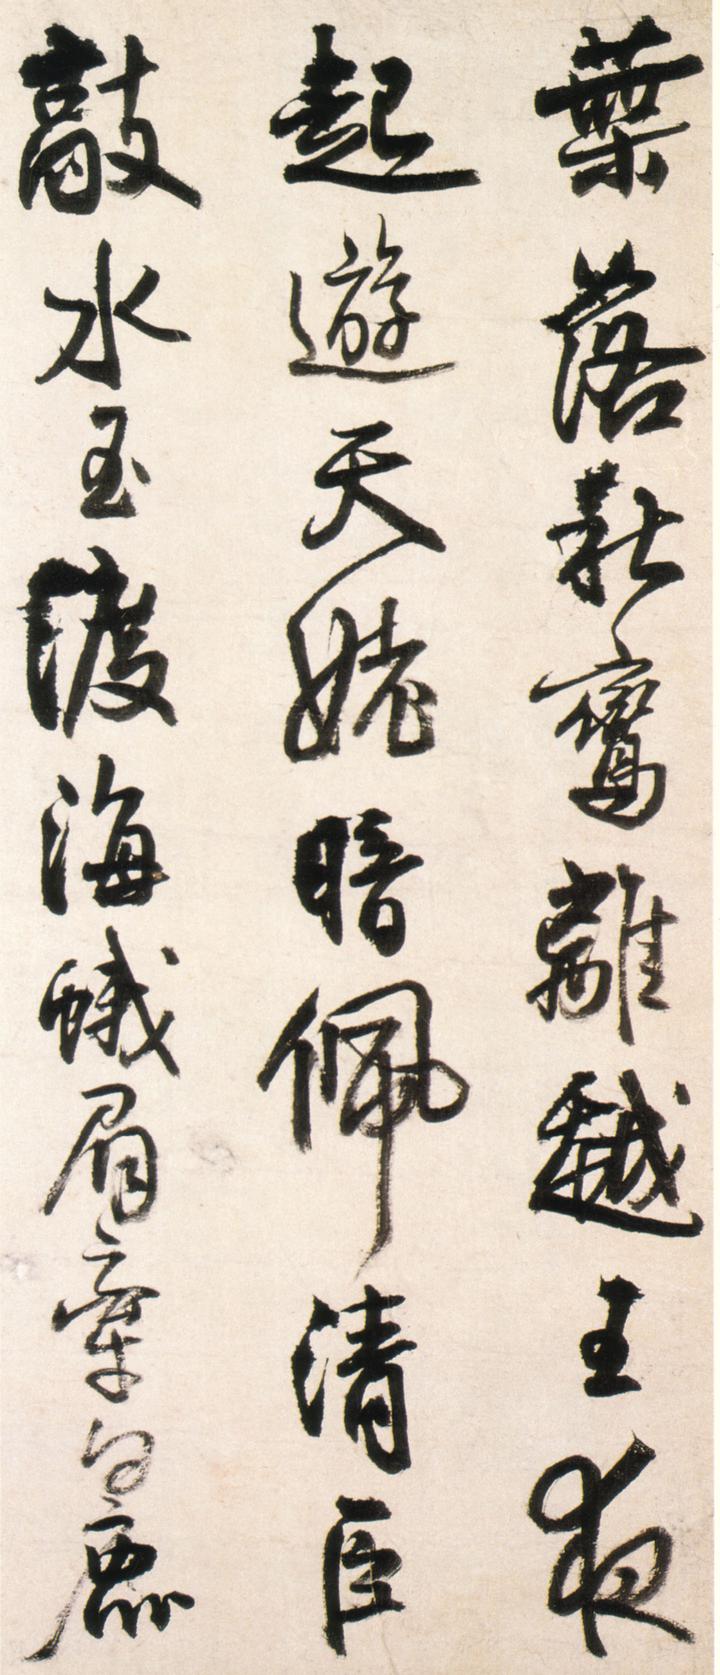 葉落秋鸞離越王夜
起遊天姥暗佩清臣
敲水玉渡海蛾眉牽白鹿